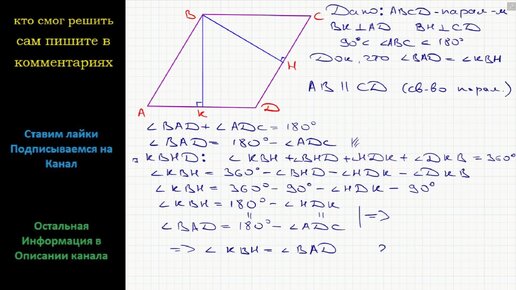 кто смог решить
сам пишите в
комментариях
Ставим лайки
Подписываемся на
Канал
Остальная
Информация в
Описании канала
B
C
H
A
K
D
Дано: ABCD - парал-м
BK⊥AD BH⊥CD
90°< ∠ABC < 180°
Док, что ∠BAD = ∠KBH
AB || CD (св-во парал.)
∠BAD + ∠ADC = 180°
∠BAD = 180° - ∠ADC
KBHD: ∠KBH + ∠BHD + ∠HDK + ∠DKB = 360°
∠KBH = 360° - ∠BHD - ∠HDK - ∠DKB
∠KBH = 360° - 90° - ∠HDK - 90°
∠KBH = 180° - ∠HDK
∠BAD = 180° - ∠ADC | =>
=> ∠KBH = ∠BAD